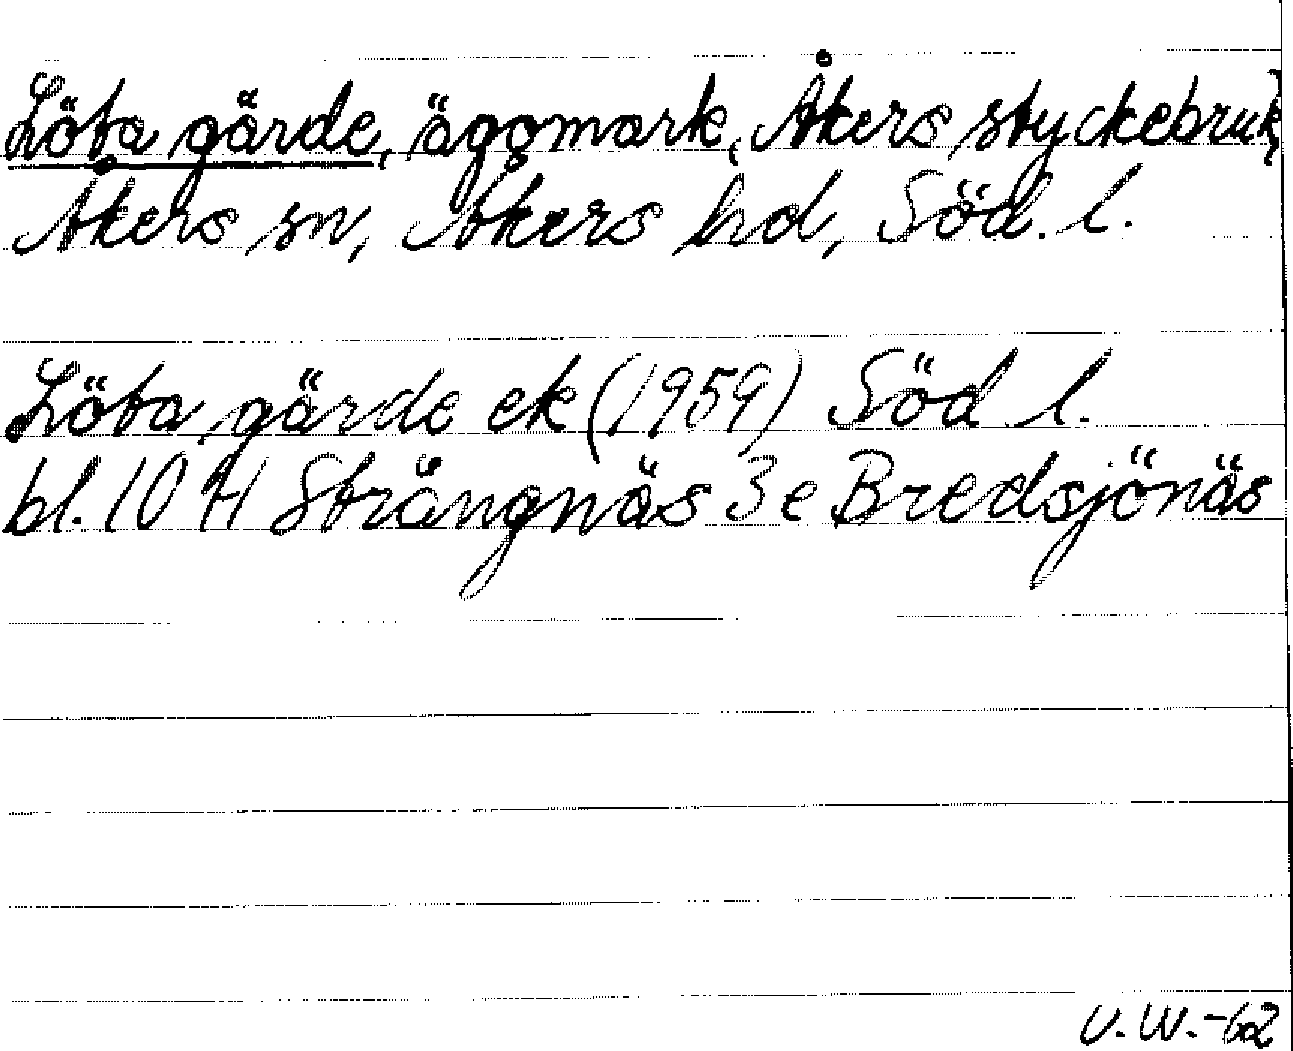 Löta gärde, ägomark, Åkers styckebruk,
Åkers sn, Åkers hd, Söd. l.
Löta gärde ek (1959) Söd l.
bl. 10 H Strängnäs 3 e Bredsjönäs
U.W.-62